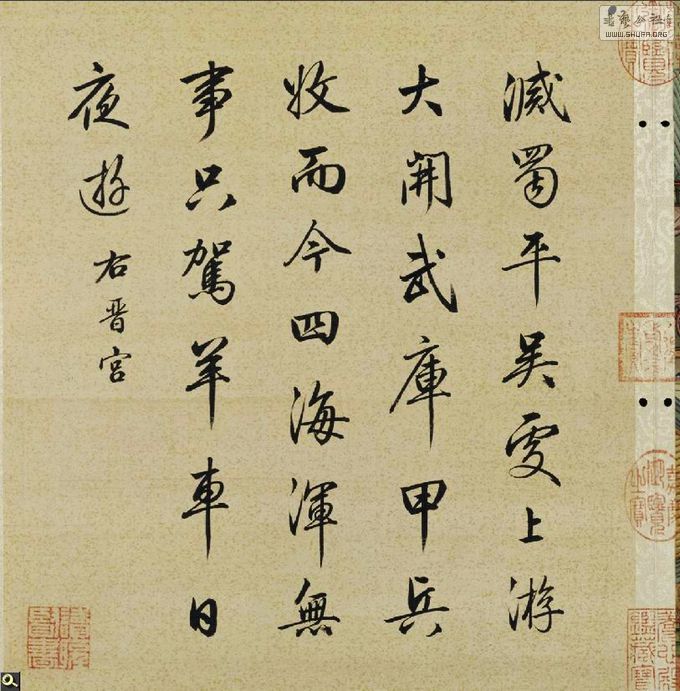 滅蜀平吳上游
大開武庫甲兵
收而今四海渾無
事只駕羊車日
夜遊
右晉宮
WWW.SHUFA.ORG